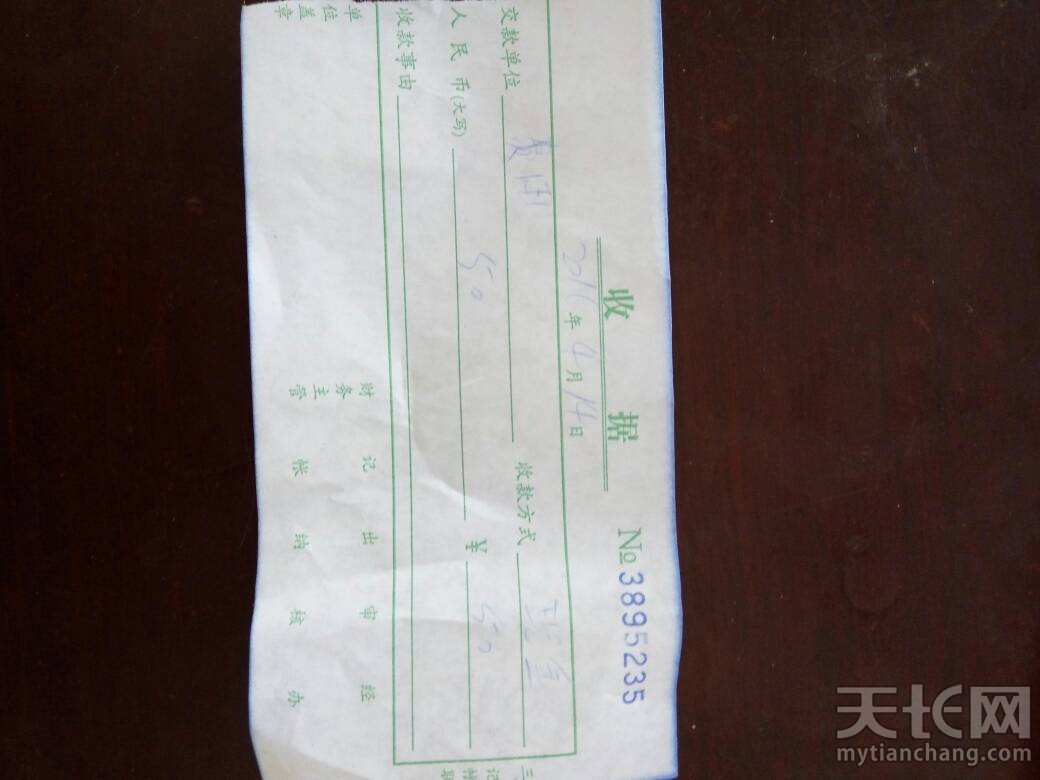 收 据
№ 3895235
2016年4月14日
交款单位 收款方式 现金
人民币(大写) 50 ¥ 50
收款事由
单位盖章 财务主管 记帐 出纳 审核 经办
天长网
mytianchang.com